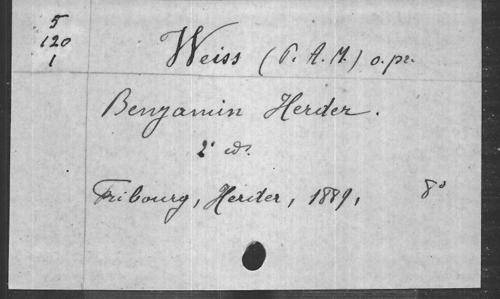 5
120
1
Weiss (P. A. M.) o. pr.
Benjamin Herder.
2e ed.
Fribourg, Herder, 1889, 8°